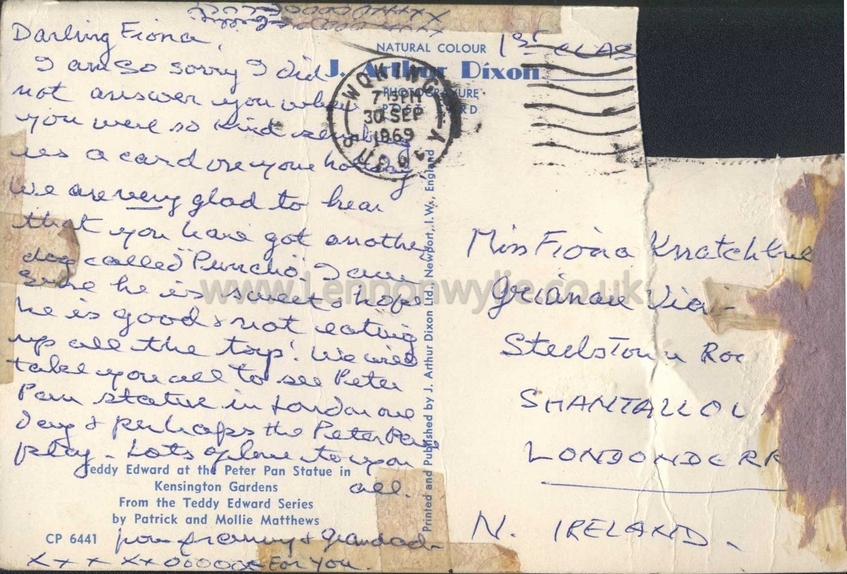 Darling Fiona,
I am so sorry I did
not answer you when
you were so kind sending
us a card on your holiday
We are very glad to hear
that you have got another
dog called "Puncho" I am
sure he is sweet & hope
he is good & not eating
up all the toys! We will
take you all to see Peter
Pan statue in London one
day & perhaps the Peter Pan
play - Lots of love to you
all.
from granny & grandad
x x x x x oooooo For You.
NATURAL COLOUR
J. Arthur Dixon
PHOTOGRAVURE
POST CARD
1st CLAS
WOKING
7-PM
30 SEP
1969
Printed and Published by J. Arthur Dixon Ltd., Newport, I.W., England
Teddy Edward at the Peter Pan Statue in
Kensington Gardens
From the Teddy Edward Series
by Patrick and Mollie Matthews
CP 6441
Miss Fiona
Steelstown
SHANTALLO
LONDONDERR
N. IRELAND.
www.Lennonwylie.co.uk